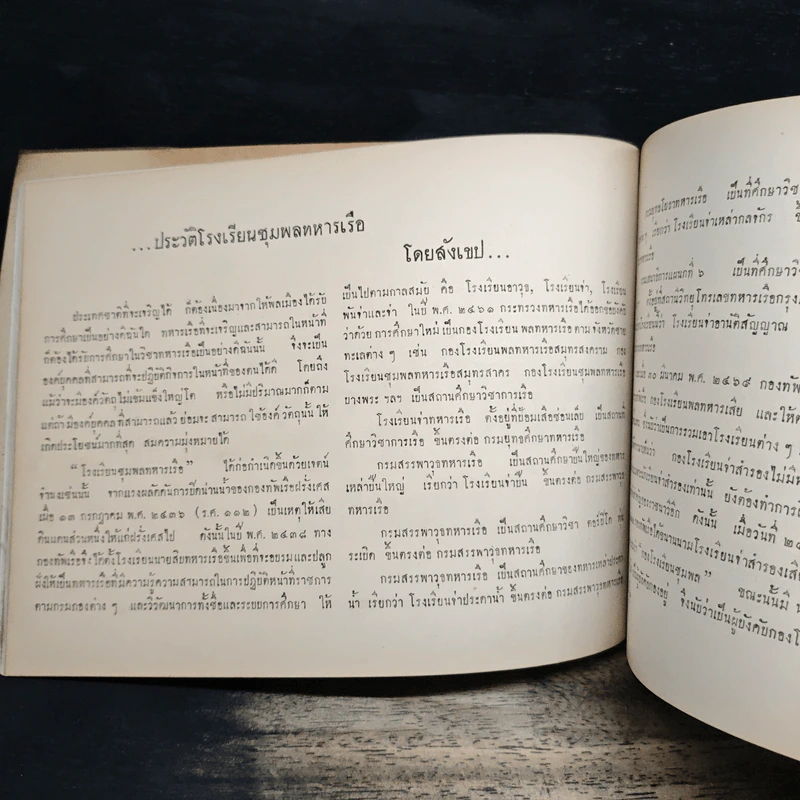 ...ประวัติโรงเรียนชุมพลทหารเรือ
โดยสังเขป...
ประเทศชาติที่จะเจริญได้ ก็ต้องเนื่องมาจากให้พลเมืองได้รับ
การศึกษาเป็นอย่างดีฉันใด ทหารเรือที่จะเจริญและสามารถในหน้าที่
ก็ต้องได้รับการศึกษาในวิชาทหารเรือเป็นอย่างดีฉันนั้น จึงจะเป็น
องค์บุคคลที่สามารถที่จะปฏิบัติกิจการในหน้าที่ของตนได้ดี โดยถึง
แม้ว่าจะมีองค์วัตถุไม่เข้มแข็งใหญ่โต หรือไม่มีปริมาณมากก็ตาม
แต่ถ้ามีองค์บุคคลที่สามารถแล้ว ย่อมจะสามารถใช้องค์วัตถุนั้นให้
เกิดประโยชน์มากที่สุด สมความมุ่งหมายได้
"โรงเรียนชุมพลทหารเรือ" ได้ก่อกำเนิดขึ้นด้วยเจตน์
จำนงเช่นนั้น จากแรงผลักดันการยึดน่านน้ำของกองทัพเรือฝรั่งเศส
เมื่อ ๑๓ กรกฎาคม พ.ศ. ๒๔๓๖ (ร.ศ. ๑๑๒) เป็นเหตุให้เสีย
ดินแดนส่วนหนึ่งให้แก่ฝรั่งเศสไป ดังนั้นในปี พ.ศ. ๒๔๓๘ ทาง
กองทัพเรือจึงได้ตั้งโรงเรียนนายสิบทหารเรือขึ้นเพื่อที่จะอบรม และปลูก
ฝังให้เป็นทหารเรือที่มีความรู้ความสามารถในการปฏิบัติหน้าที่ราชการ
ตามกรมกองต่าง ๆ และวิวัฒนาการทั้งชื่อและระบบการศึกษา ให้
เป็นไปตามกาลสมัย คือ โรงเรียนอาวุธ, โรงเรียนจ่า, โรงเรียน
พันจ่าและจ่า ในปี พ.ศ. ๒๔๖๑ กระทรวงทหารเรือได้ออกข้อบังคับ
ว่าด้วย การศึกษาใหม่ เป็นกองโรงเรียน พลทหารเรือ ตามจังหวัดชาย
ทะเลต่าง ๆ เช่น กองโรงเรียนพลทหารเรือสมุทรสงคราม กอง
โรงเรียนชุมพลทหารเรือสมุทรสาคร กองโรงเรียนชุมพลทหารเรือ
บางพระ ฯลฯ เป็นสถานศึกษาวิชาการเรือ
โรงเรียนจ่าทหารเรือ ตั้งอยู่ที่ป้อมเสือซ่อนเล็บ เป็นสถานที่
ศึกษาวิชาการเรือ ขึ้นตรงต่อ กรมยุทธศึกษาทหารเรือ
กรมสรรพาวุธทหารเรือ เป็นสถานศึกษาปืนใหญ่ของทหาร
เหล่าปืนใหญ่ เรียกว่า โรงเรียนจ่าปืน ขึ้นตรงต่อ กรมสรรพาวุธ
ทหารเรือ
กรมสรรพาวุธทหารเรือ เป็นสถานศึกษาวิชา ตอร์ปิโด ทุ่น
ระเบิด ขึ้นตรงต่อ กรมสรรพาวุธทหารเรือ
กรมสรรพาวุธทหารเรือ เป็นสถานศึกษาของทหารเหล่าประดา
น้ำ เรียกว่า โรงเรียนจ่าประดาน้ำ ขึ้นตรงต่อ กรมสรรพาวุธทหารเรือ
เป็นที่ศึกษาวิชา
เรียกว่า โรงเรียนจ่าเหล่ากลจักร
แผนกที่ ๖ เป็นที่ศึกษาวิชา
ตั้งอยู่ที่สถานีวิทยุโทรเลขทหารเรือกรุง
โรงเรียนจ่าอาณัติสัญญาณ
๓๐ มีนาคม พ.ศ. ๒๔๖๙ กองทัพ
กองโรงเรียนพลทหารเสีย และให้
เป็นการรวมเอาโรงเรียนต่าง ๆ
กองโรงเรียนจ่าสำรองไม่มี
สำรองเท่านั้น ยังต้องทำการ
ดังนั้น เมื่อวันที่
นามโรงเรียนจ่าสำรองเสีย
"กองโรงเรียนชุมพล" ขณะนั้นมี
อยู่ จึงนับว่าเป็นผู้บังคับกองโรง